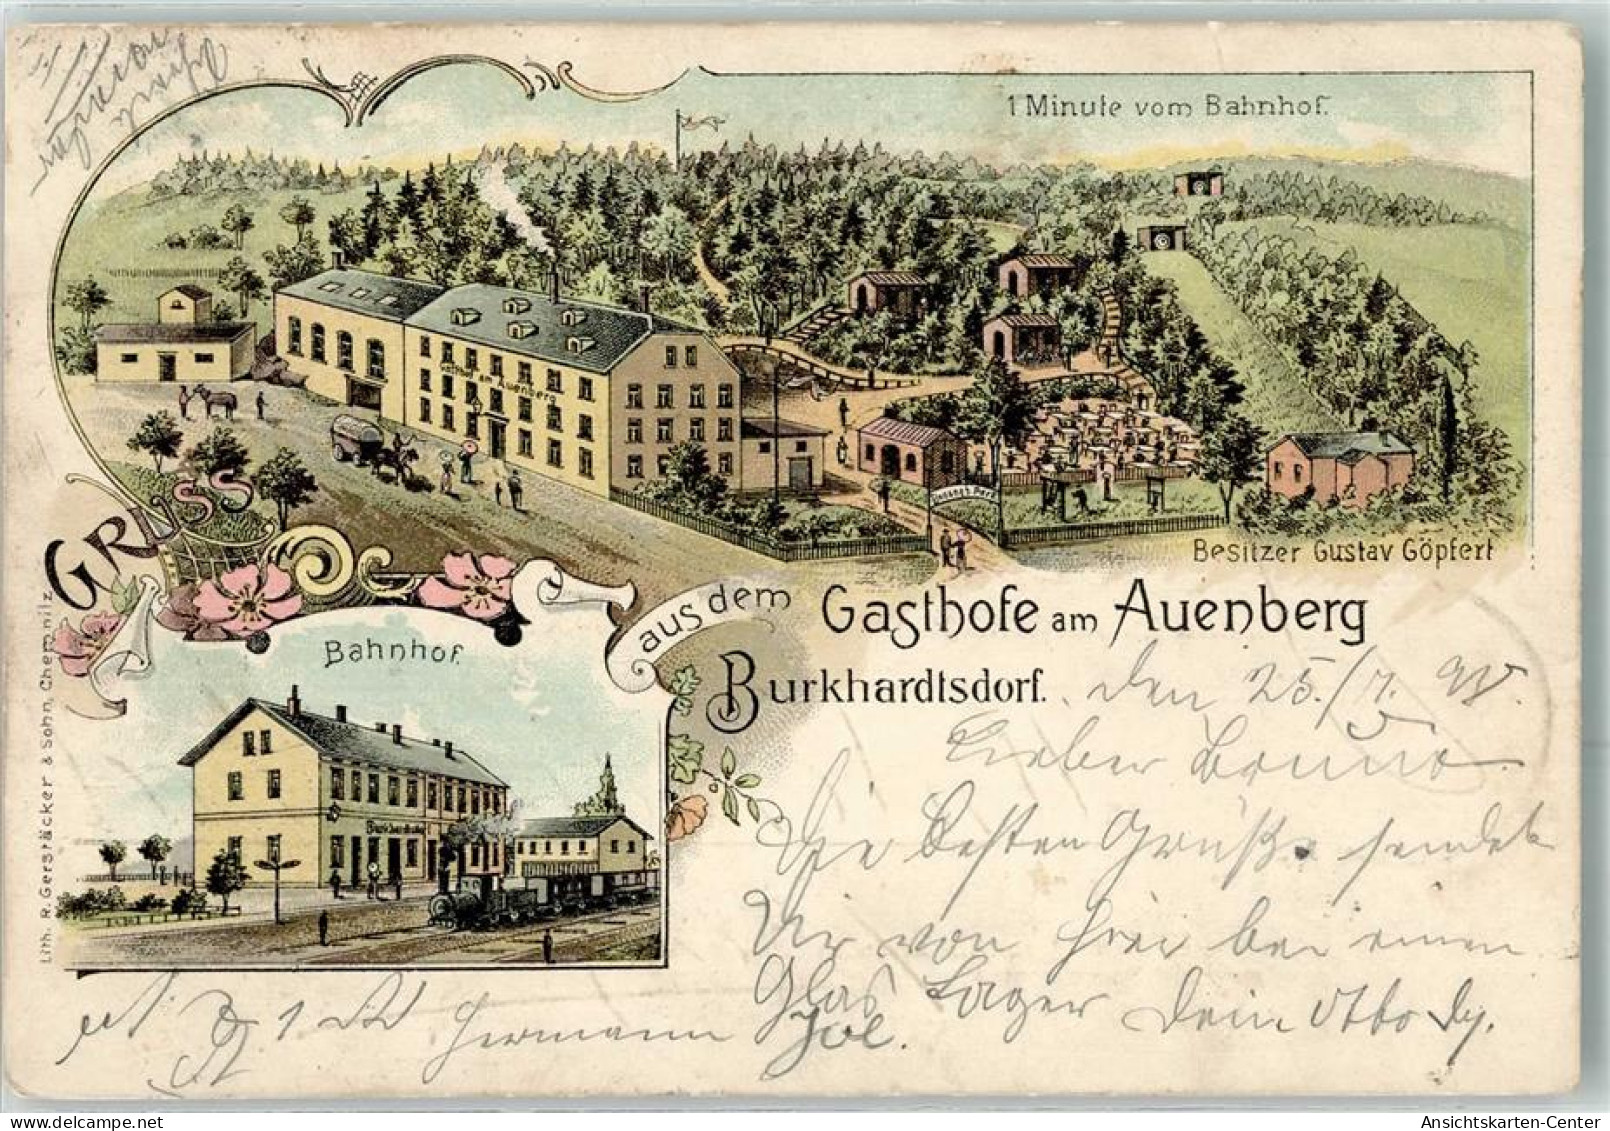 1 Minute vom Bahnhof.
Gasthof am Auenberg
Besitzer Gustav Göpfert
GRUSS
aus dem Gasthofe am Auenberg
Burkhardtsdorf.
Bahnhof.
Burkhardtsdorf
Lith. R. Gerstäcker & Sohn, Chemnitz.
den 25./7. 
Lieber Bruno
Die besten Grüße sendet
Dir von hier bei einem
Glas Lager Dein Otto
Hermann
Ansichtskarten-Center